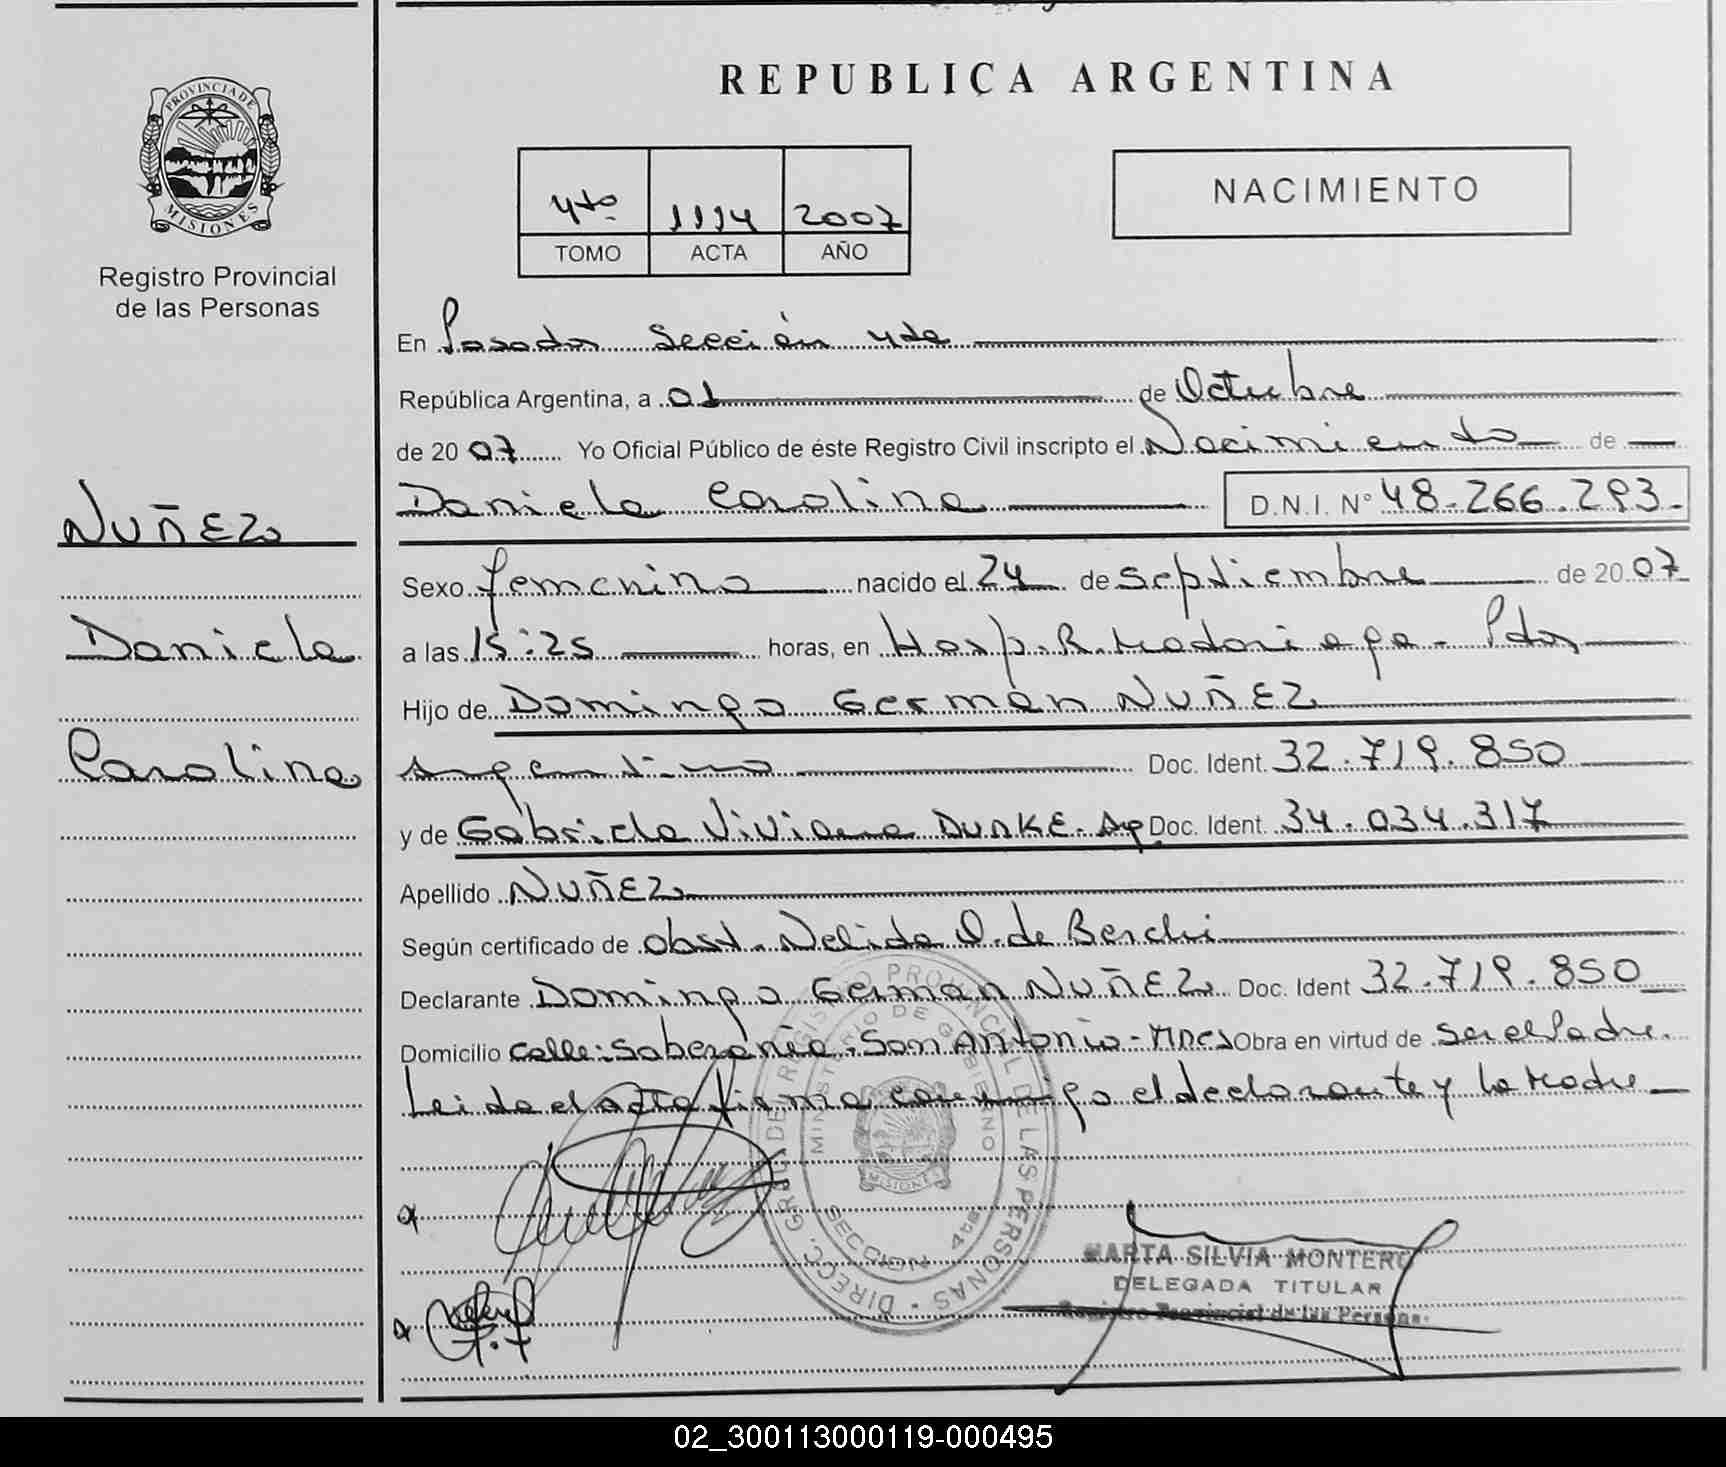 REPUBLICA ARGENTINA
PROVINCIA DE
MISIONES
Registro Provincial
de las Personas
4to 1114 2007
TOMO ACTA AÑO
NACIMIENTO
En Posadas Sección 4ta
República Argentina, a 01 de Octubre
de 2007 Yo Oficial Público de éste Registro Civil inscripto el Nacimiento de
Daniela Carolina D.N.I. Nº 48.266.293.-
NUÑEZ
Daniela
Carolina
Sexo femenino nacido el 24 de septiembre de 2007
a las 15:25 horas, en Hosp. R. Madariaga - Pdas
Hijo de Domingo Germán NUÑEZ
argentino Doc. Ident. 32.719.850
y de Gabriela Viviana DUNKE. Ag Doc. Ident. 34.034.317
Apellido NUÑEZ
Según certificado de obst. Nelida O. de Berchi
Declarante Domingo Germán NUÑEZ Doc. Ident 32.719.850
Domicilio Calle: Soberanía. San Antonio - Mnes Obra en virtud de ser el Padre.
Leida el acta firma conmigo el declarante y la Madre
DIRECC. GRAL DE REGISTRO PROVINCIAL DE LAS PERSONAS
MINISTERIO DE GOBIERNO
MISIONES
SECCION 4ta
MARTA SILVIA MONTERO
DELEGADA TITULAR
Registro Provincial de las Personas
02_300113000119-000495